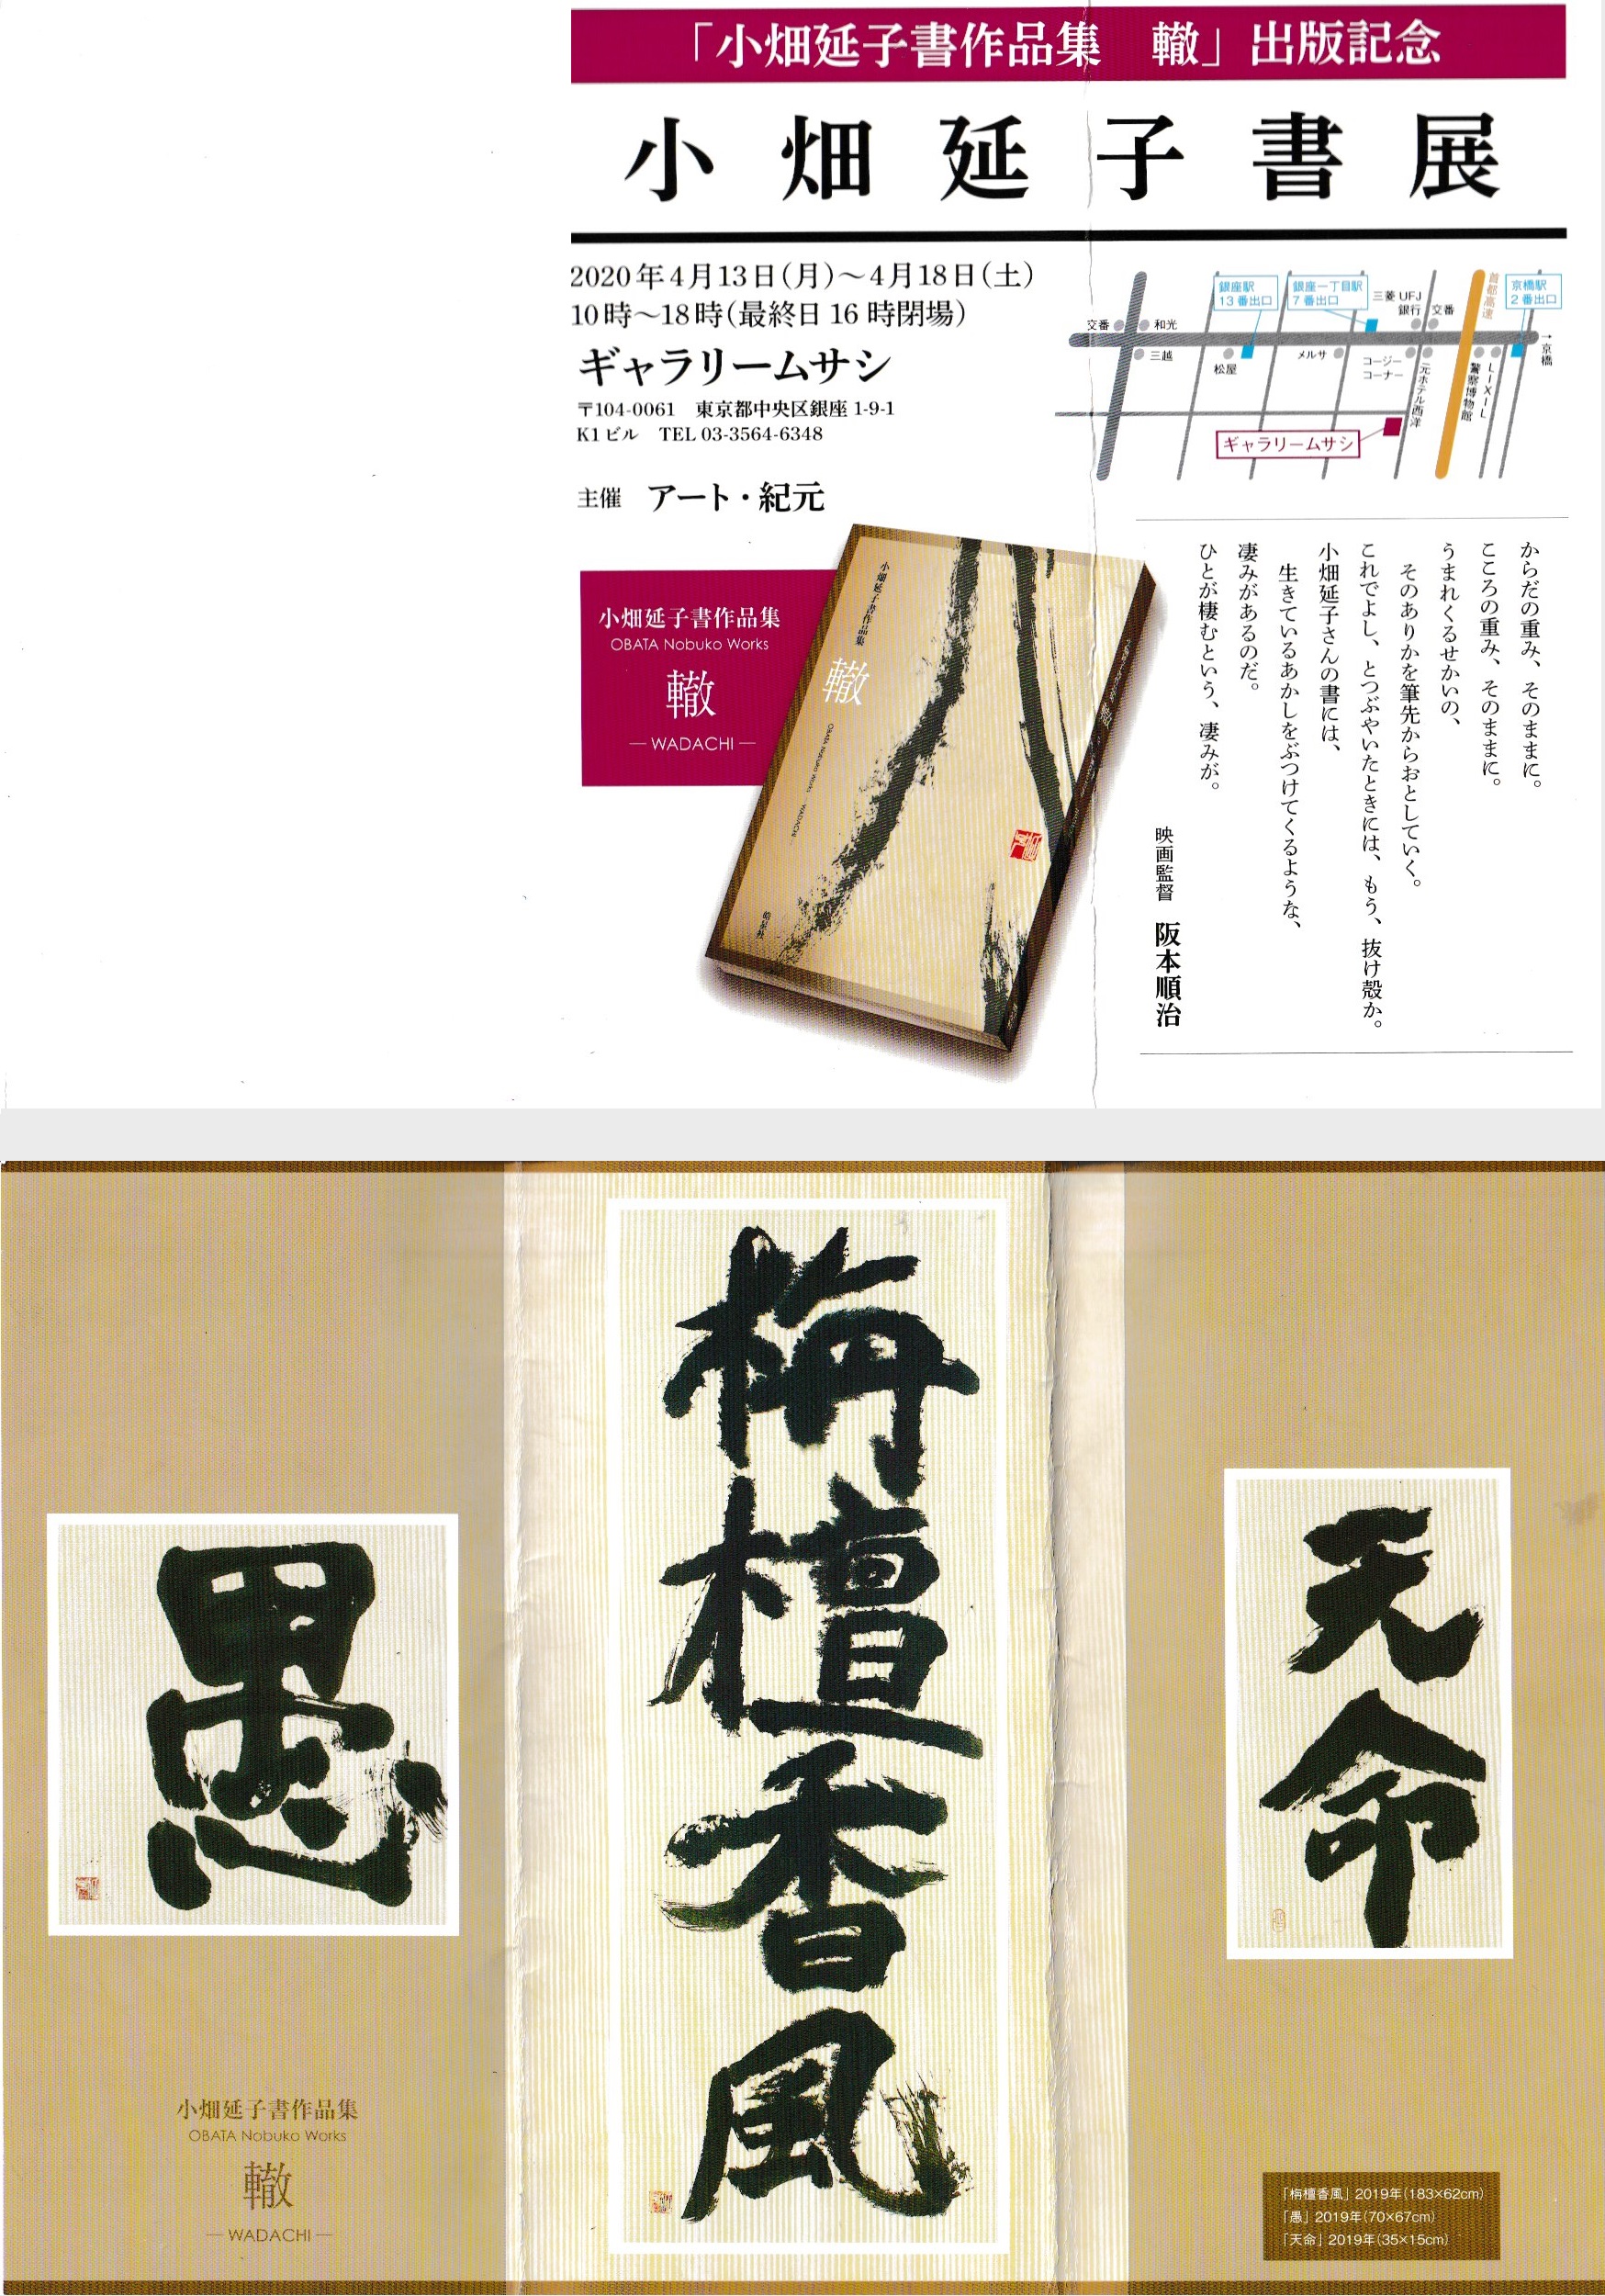 「小畑延子書作品集　轍」出版記念
小畑延子書展
2020年4月13日(月)～4月18日(土)
10時～18時(最終日16時閉場)
ギャラリームサシ
〒104-0061　東京都中央区銀座1-9-1
K1ビル　TEL 03-3564-6348
主催　アート・紀元
銀座駅
13番出口
銀座一丁目駅
7番出口
三菱UFJ
銀行
交番
首都高速
京橋駅
2番出口
交番
和光
三越
松屋
メルサ
コージー
コーナー
元ホテル西洋
警察博物館
LIXIL
→京橋
ギャラリームサシ
小畑延子書作品集
OBATA Nobuko Works
轍
— WADACHI —
小畑延子書作品集
轍
OBATA Nobuko Works
WADACHI
皓星社
からだの重み、そのままに。
こころの重み、そのままに。
うまれくるせかいの、
そのありかを筆先からおとしていく。
これでよし、とつぶやいたときには、もう、抜け殻か。
小畑延子さんの書には、
生きているあかしをぶつけてくるような、
凄みがあるのだ。
ひとが棲むという、凄みが。
映画監督　阪本順治
愚
栴檀香風
天命
小畑延子書作品集
OBATA Nobuko Works
轍
— WADACHI —
「栴檀香風」2019年(183×62cm)
「愚」2019年(70×67cm)
「天命」2019年(35×15cm)